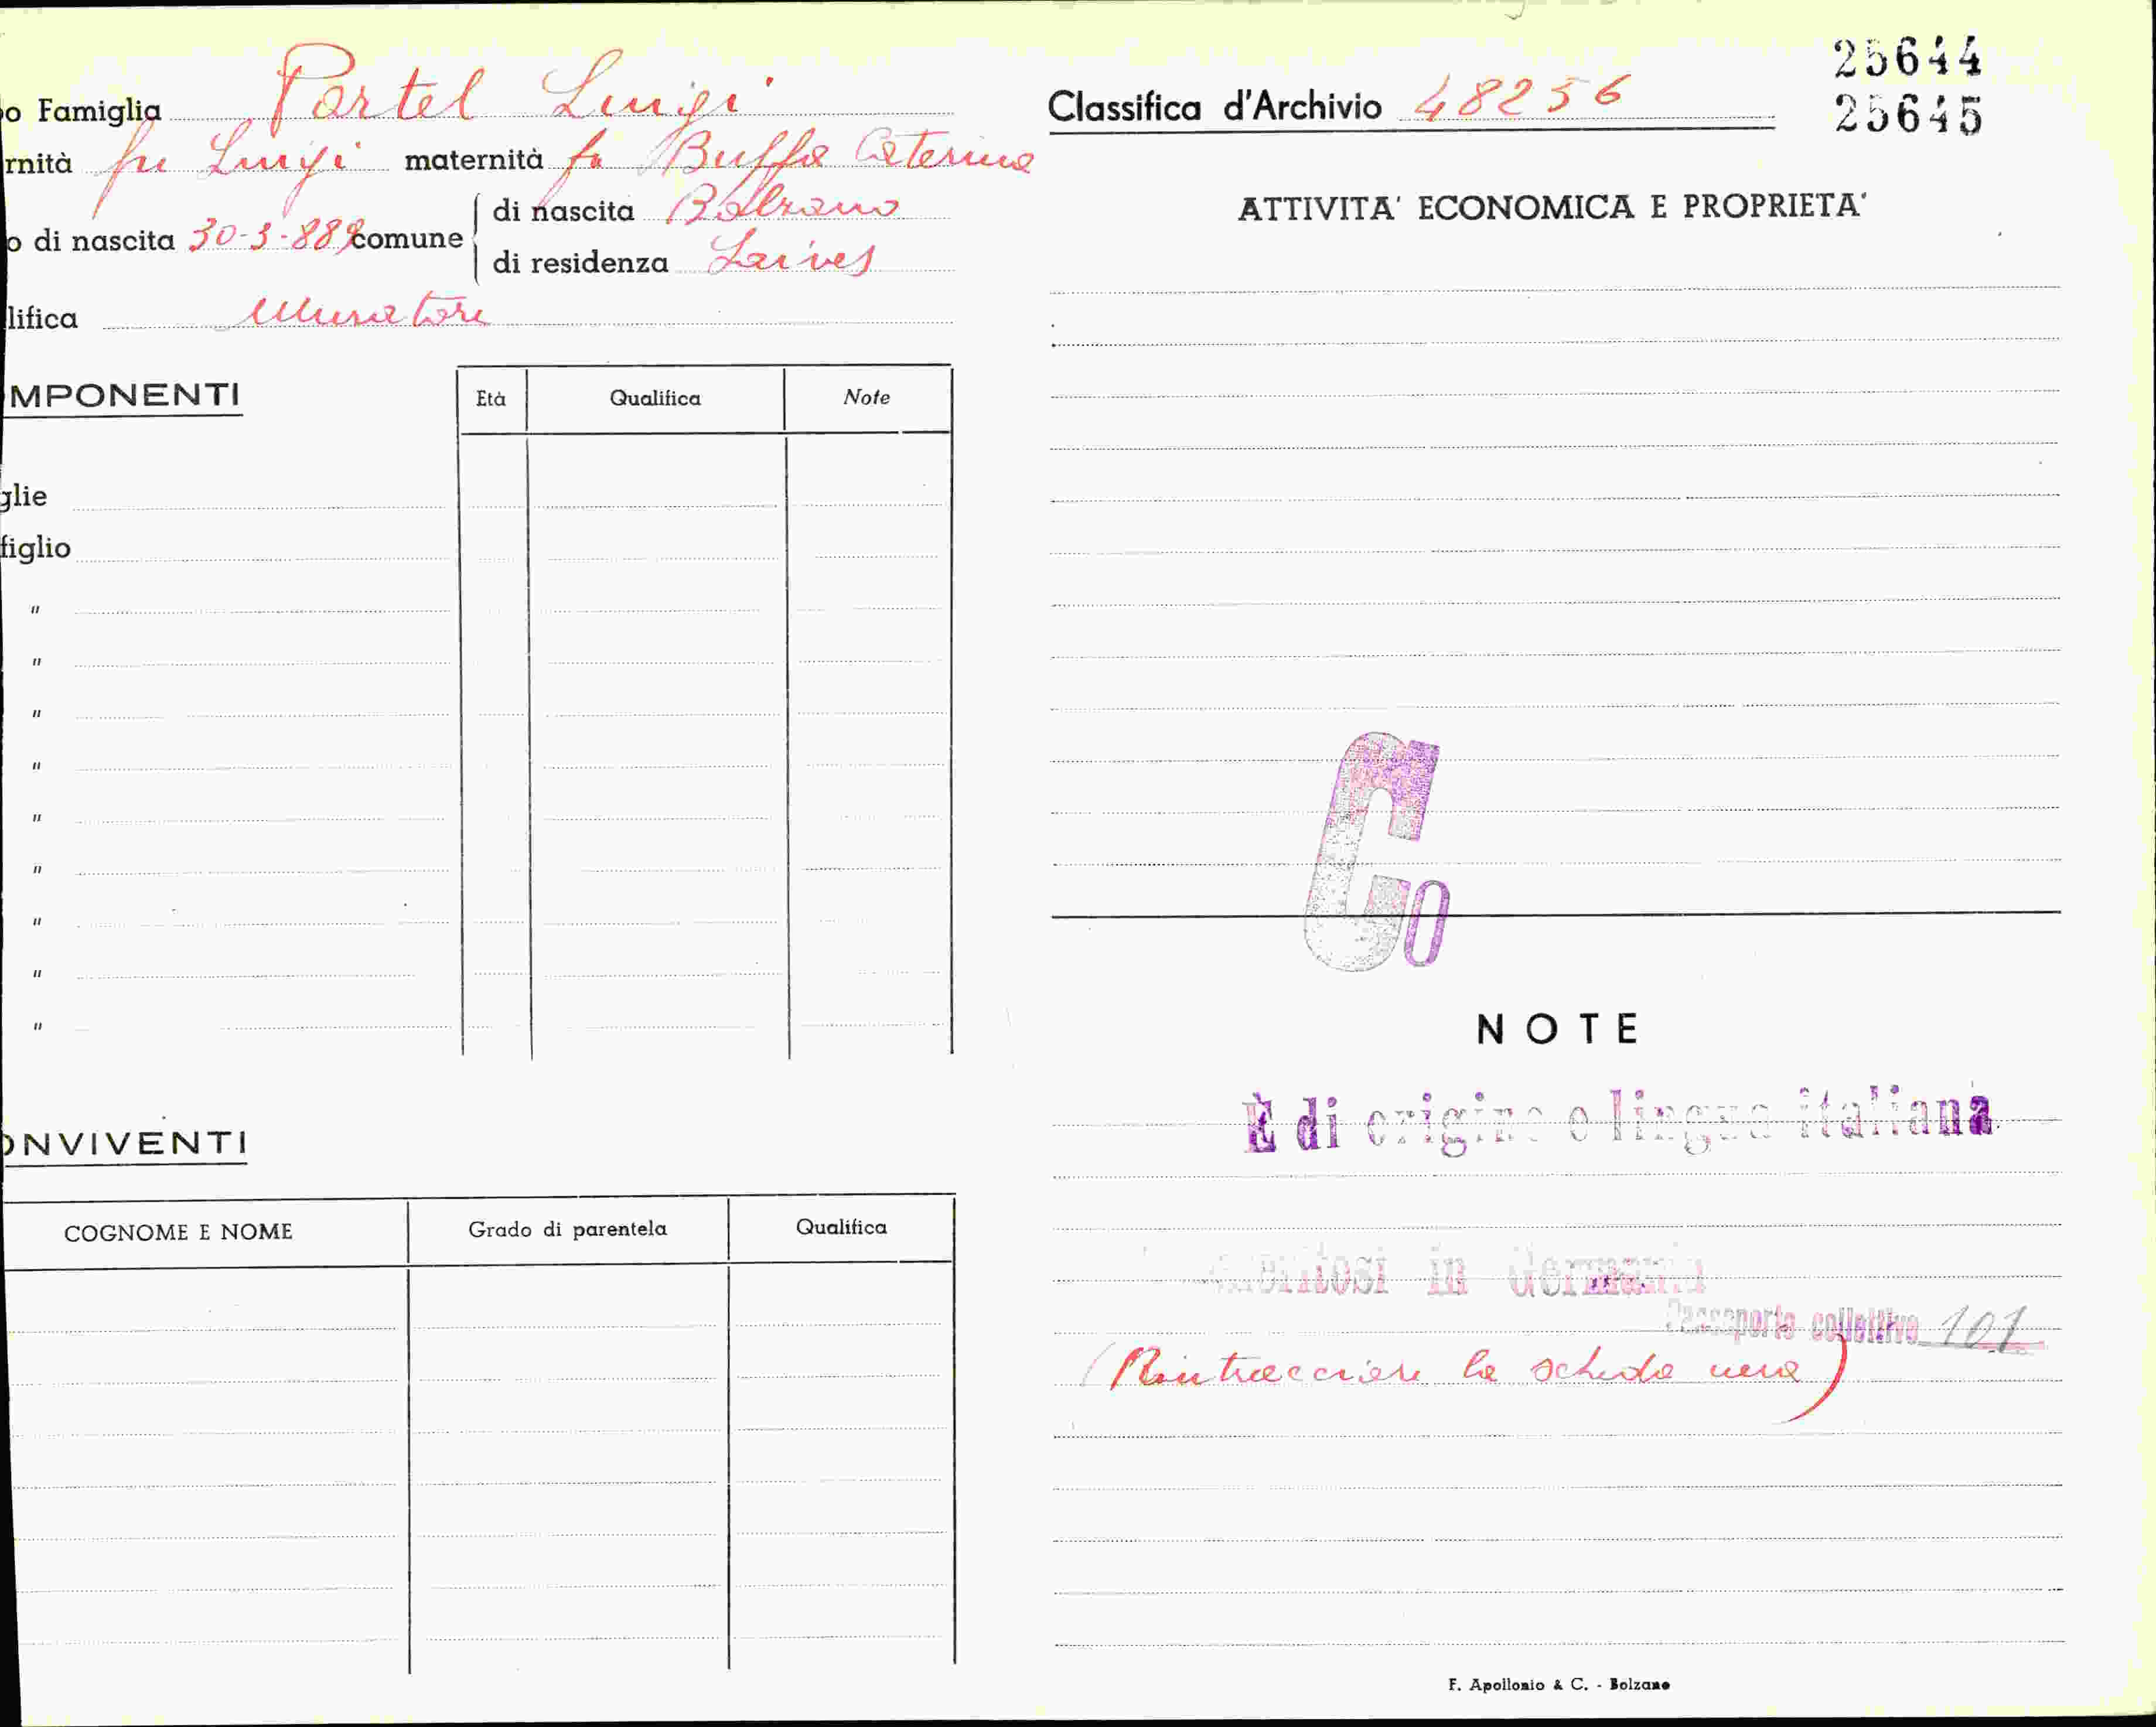 o Famiglia Partel Luigi
rnità fu Luigi maternità fu Buffa Caterina
o di nascita 30-3-889 comune
di nascita Bolzano
di residenza Laives
lifica Muratore
MPONENTI
Età Qualifica Note
glie
figlio
"
"
"
"
"
"
"
"
"
ONVIVENTI
COGNOME E NOME Grado di parentela Qualifica
25644
Classifica d'Archivio 48256
25645
ATTIVITA' ECONOMICA E PROPRIETA'
Co
NOTE
È di origine e lingua italiana
in Germania
Passaporto collettivo 101
(Rintracciare la scheda vera)
F. Apollonio & C. - Bolzano